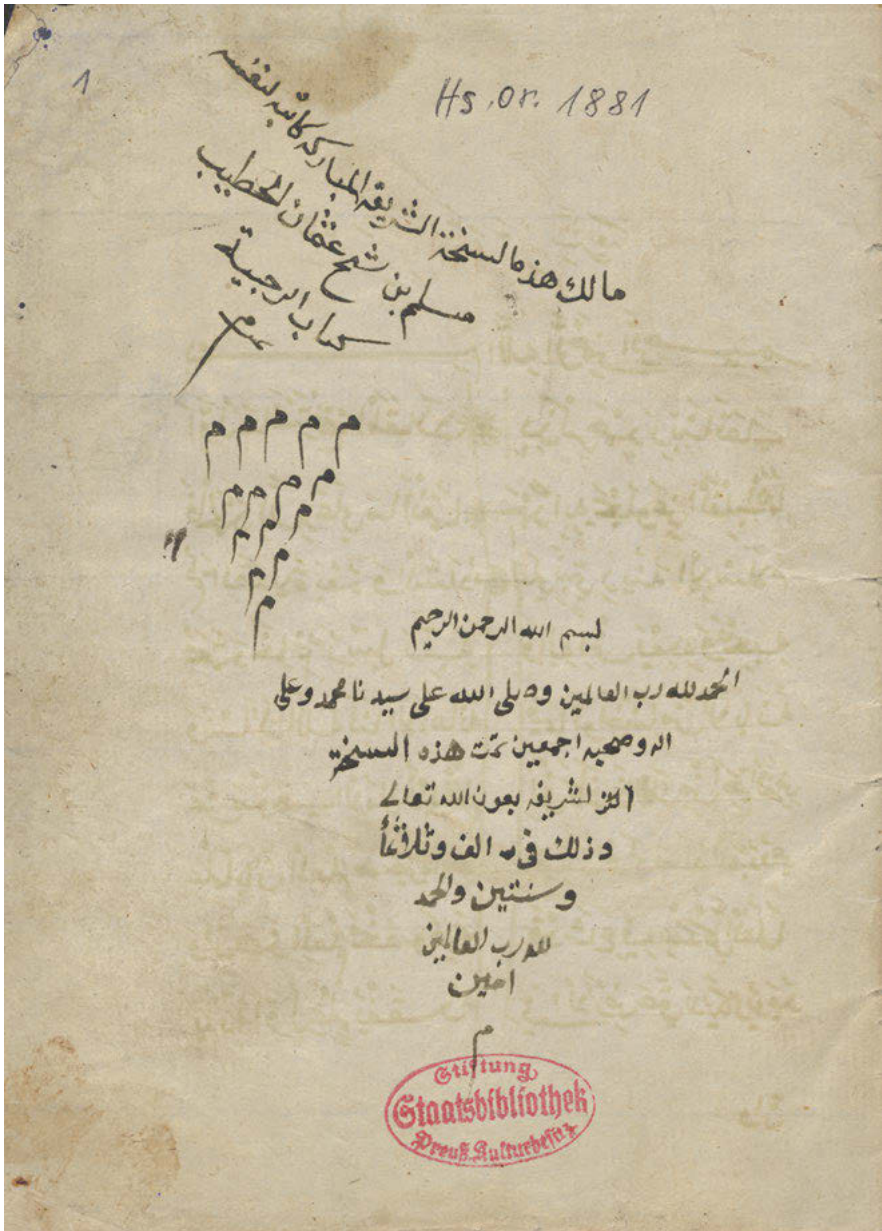 1
Hs. or. 1881
مالك هذه السخة الشريفة المباركه كاتبه لنفسه
مسلم بن شيخ عثمان الخطيب
الرحبية
م م م م م
م م م م
م م م
م م
م
لبسم الله الرحمن الرحيم
الحمد لله رب العالمين وصلى الله على سيدنا محمد وعلى
اله وصحبه اجمعين تمت هذه السخة
الشريفه بعون الله تعالى
وذلك في سـ الف وثلاثمأ
وسنتين والحمد
لله رب العالمين
امين
م
Stiftung
Staatsbibliothek
Preuß. Kulturbesitz